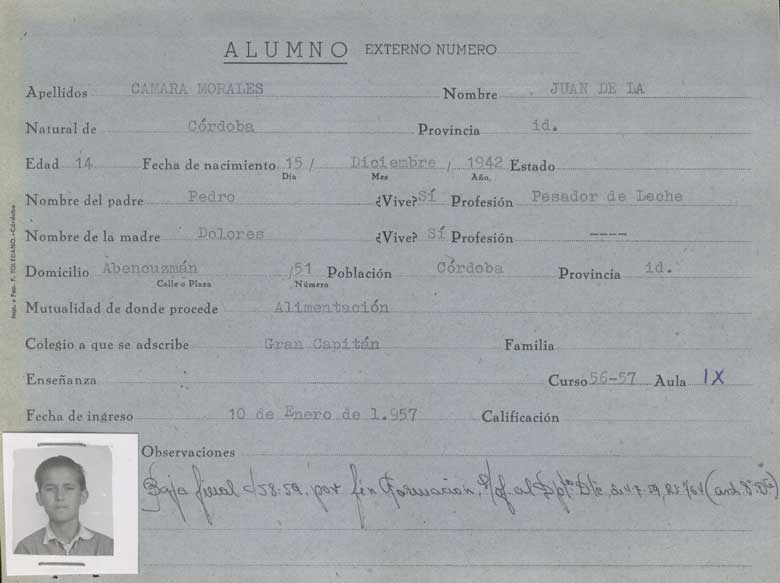 ALUMNO EXTERNO NUMERO
Apellidos CAMARA MORALES Nombre JUAN DE LA
Natural de Córdoba Provincia id.
Edad 14 Fecha de nacimiento 15 / Diciembre / 1942 Estado
Día Mes Año
Nombre del padre Pedro ¿Vive? Sí Profesión Pesador de Leche
Nombre de la madre Dolores ¿Vive? Sí Profesión ----
Domicilio Abencuzmán /51 Población Córdoba Provincia id.
Calle o Plaza Número
Mutualidad de donde procede Alimentación
Colegio a que se adscribe Gran Capitán Familia
Enseñanza Curso 56-57 Aula IX
Fecha de ingreso 10 de Enero de 1.957 Calificación
Observaciones
Baja final c/58-59, por fin Formación, al
Imp. y Pap. F. TOLEDANO.-Córdoba